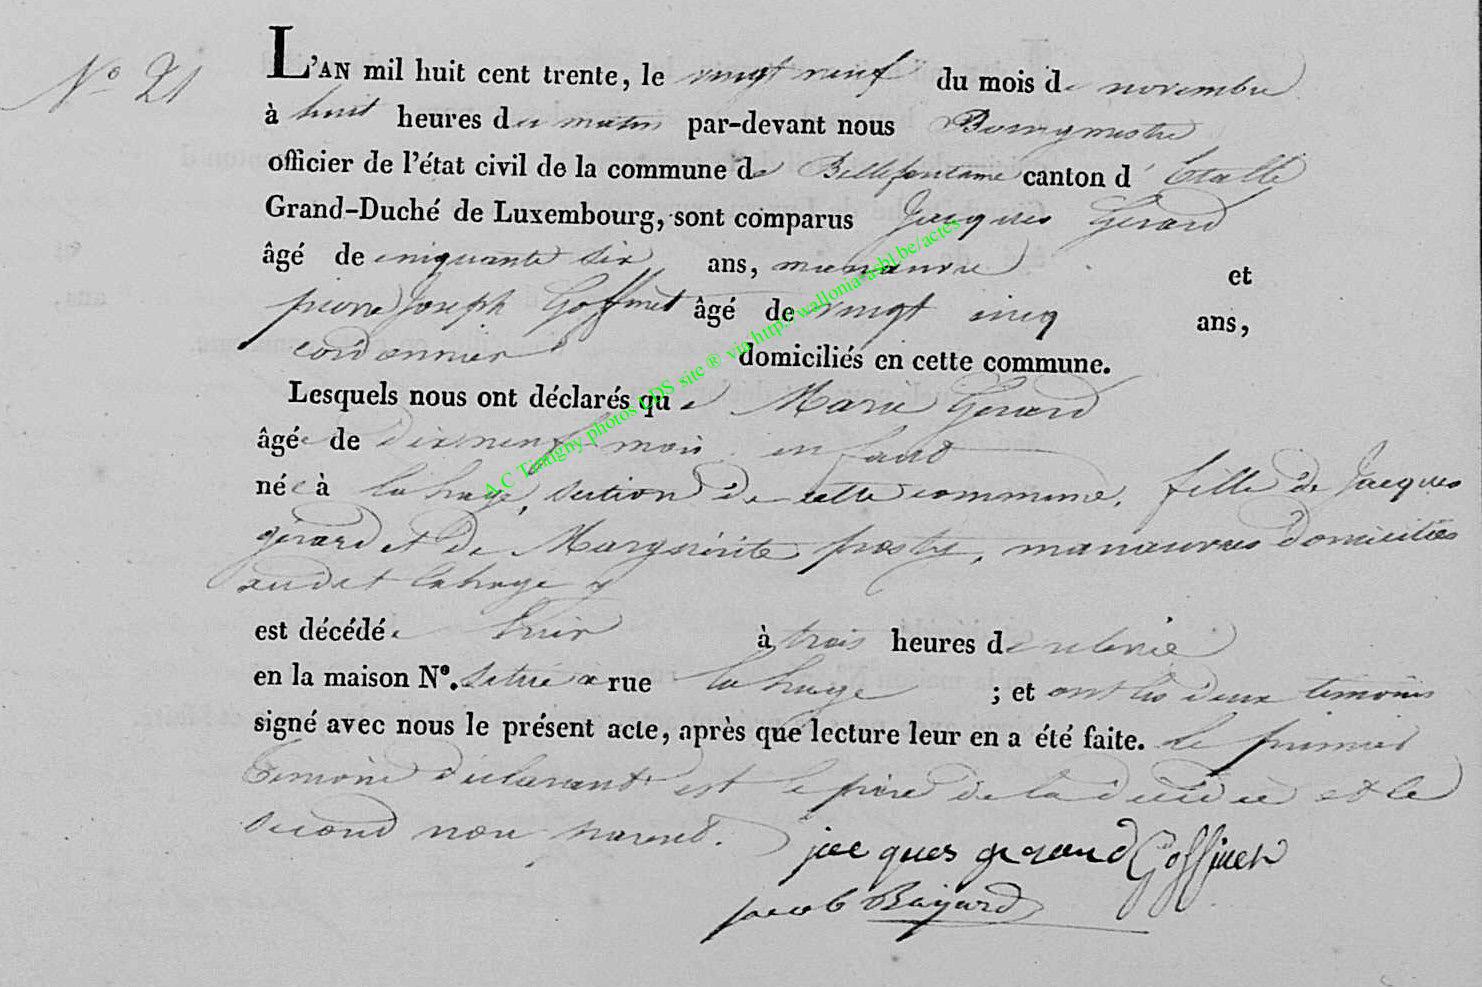 N° 21
L'AN mil huit cent trente, le vingt neuf du mois de novembre
à huit heures du matin par-devant nous Bourgmestre
officier de l'état civil de la commune de Bellefontaine canton d'Etalle
Grand-Duché de Luxembourg, sont comparus Jacques Gerard
âgé de cinquante six ans, manœuvre et
pierre Joseph Goffinet âgé de vingt cinq ans,
cordonnier domiciliés en cette commune.
Lesquels nous ont déclarés que Marie Gerard
âgée de dix neuf mois enfant
née à lahage, section de cette commune, fille de Jacques
gérard et de Marguerite prosty, manœuvres domiciliés
audit lahage
est décédée hier à trois heures de relevée
en la maison N°. située rue lahage ; et ont les deux temoins
signé avec nous le présent acte, après que lecture leur en a été faite. le premier
temoin déclarant est le père de la décédée et le
second non parent.
jacques gerard Goffinet
jacob Bayard
A.C Tintigny photos LDS site ® via http://wallonia-asbl.be/actes